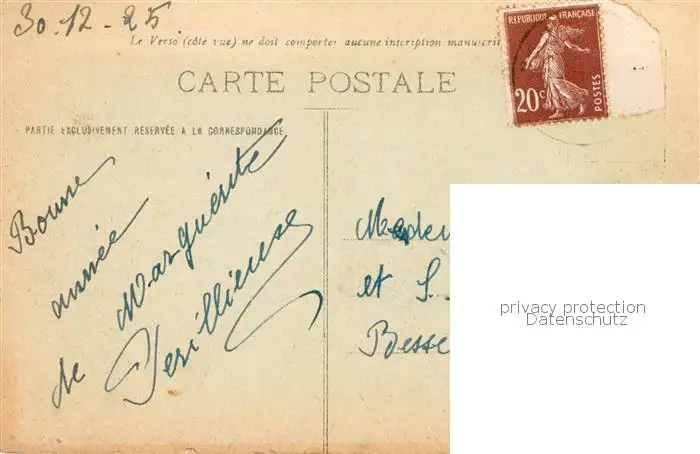 30.12-25.
Le Verso (côté vue) ne doit comporter aucune inscription manuscrit
RÉPUBLIQUE FRANÇAISE
20c
POSTES
CARTE POSTALE
PARTIE EXCLUSIVEMENT RÉSERVÉE A LA CORRESPONDANCE
Bonne
année
de Marguérite
et S.
Besse
privacy protection
Datenschutz